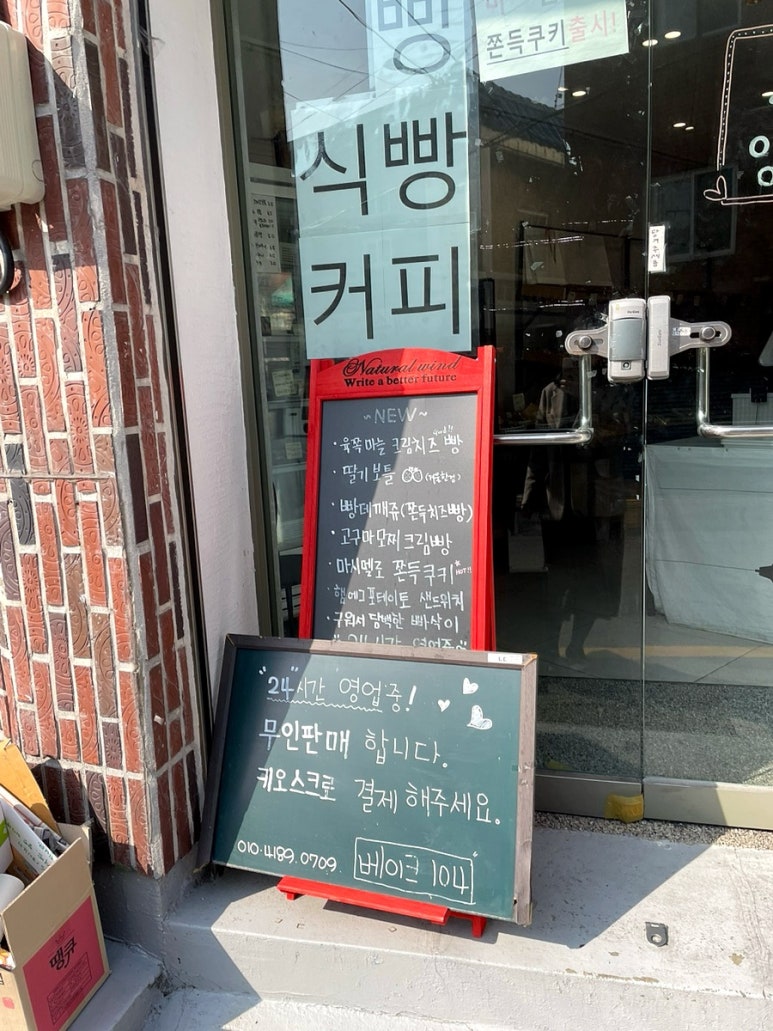 빵
쫀득쿠키출시!
식빵
커피
당겨주세요
Natural wind
Write a better future
~NEW~
·육쪽마늘 크림치즈 빵
·딸기 보틀
·빵데깨쥬(쫀득치즈빵)
·고구마모찌크림빵
·마시멜로 쫀득쿠키 HOT!!
·햄에그포테이토 샌드위치
·구워서 담백한 빠삭이
"24시간 영업중"
"24"시간 영업중!
무인판매 합니다.
키오스크로 결제해주세요.
010.4189.0709.
베이크 104
땡큐